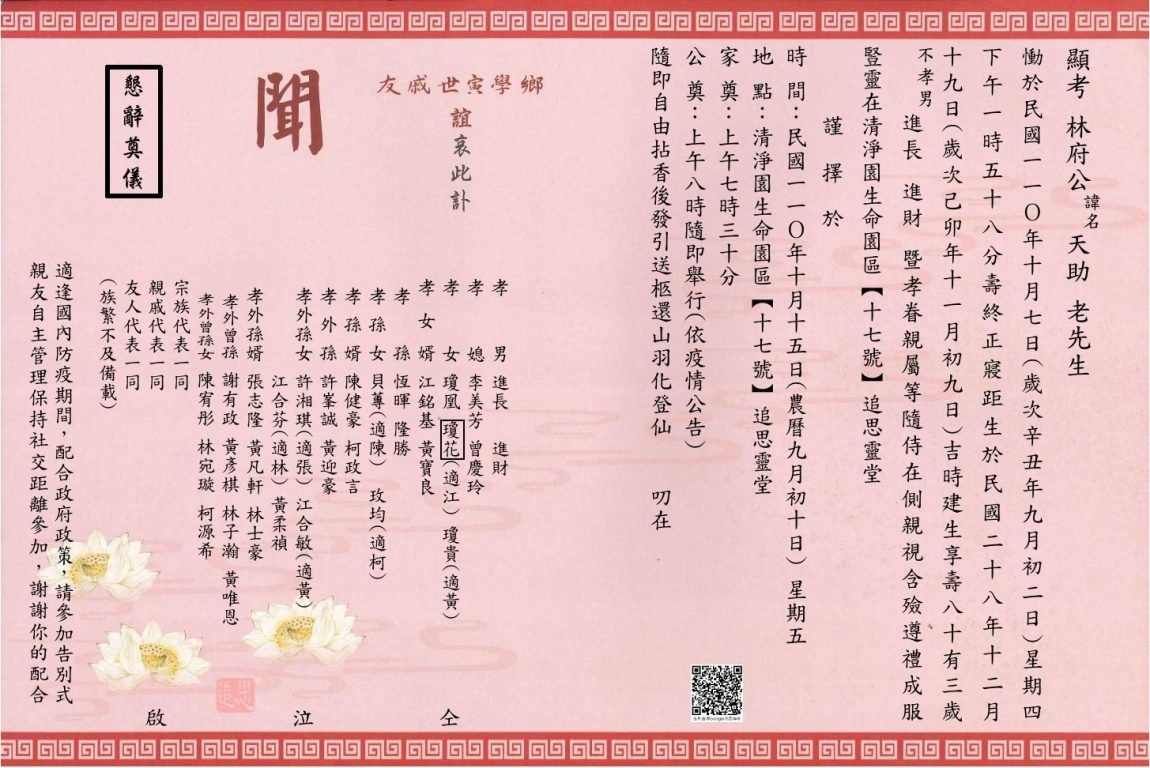 顯考 林府公諱名天助 老先生
慟於民國一一〇年十月七日(歲次辛丑年九月初二日)星期四
下午一時五十八分壽終正寢距生於民國二十八年十二月
十九日(歲次己卯年十一月初九日)吉時建生享壽八十有三歲
不孝男 進長 進財 暨孝眷親屬等隨侍在側親視含殮遵禮成服
豎靈在清淨園生命園區【十七號】追思靈堂
謹擇於
時間:民國一一〇年十月十五日(農曆九月初十日)星期五
地點:清淨園生命園區【十七號】追思靈堂
家奠:上午七時三十分
公奠:上午八時隨即舉行(依疫情公告)
隨即自由拈香後發引送柩還山羽化登仙 叨在
鄉學寅世戚友
誼哀此訃
聞
懇辭奠儀
孝男 進長 進財
孝媳 李美芳 曾慶玲
孝女 瓊凰 瓊花(適江) 瓊貴(適黃)
孝女婿 江銘基 黃寶良
孝孫 恆暉 隆勝
孝孫女 貝蓴(適陳) 玫均(適柯)
孝孫婿 陳健豪 柯政言
孝外孫 許峯誠 黃迎豪
孝外孫女 許湘琪(適張) 江合敏(適黃)
江合芬(適林) 黃柔禎
孝外孫婿 張志隆 黃凡軒 林士豪
孝外曾孫 謝有政 黃彥棋 林子瀚 黃唯恩
孝外曾孫女 陳宥彤 林宛璇 柯源希
宗族代表一同
親戚代表一同
友人代表一同
(族繁不及備載)
仝
泣
啟
適逢國內防疫期間,配合政府政策,請參加告別式
親友自主管理保持社交距離參加,謝謝你的配合
追思